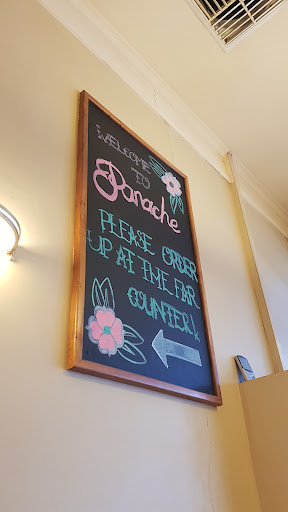 WELCOME
TO
Panache
PLEASE ORDER
UP AT THE FAR
COUNTER!